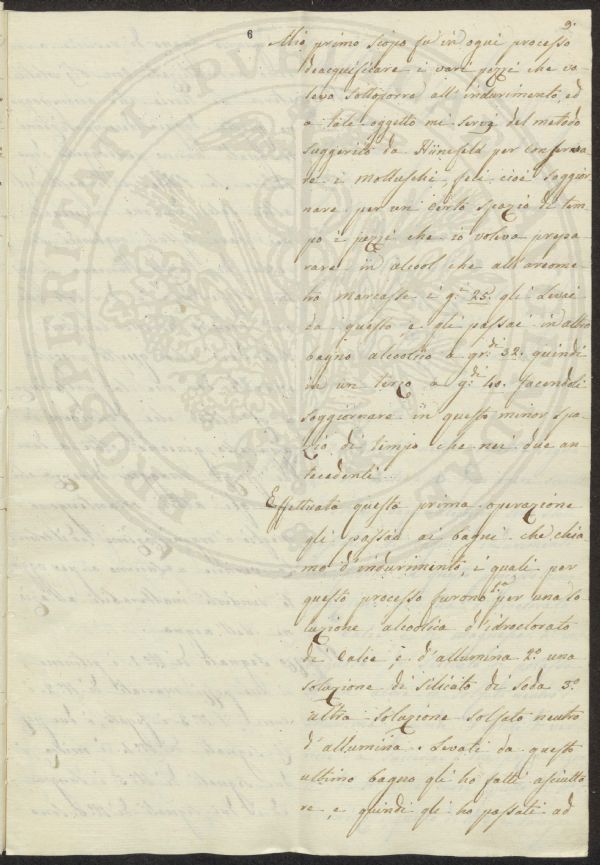 9.
6
Mio primo scopo fu in ogni processo
deacquificare i vari pezzi che vo
leva sottoporre all'indurimento, ed
a tale oggetto mi servj del metodo
suggerito da Hünefeld per conserva
re i molluschi, feci cioè soggior
nare per un certo spazio di tem
po i pezzi che io voleva prepa
rare in alcool che all'areome
tro marcasse i g.i 25. gli levai
da questo e gli passai in altro
bagno alcoolico a gr.di 32. quindi
in un terzo a g.di 40. facendoli
soggiornare in questo minor spa
zio di tempo che nei due an
tecedenti.
Effettuata questa prima operazione
gli passai ai bagni che chia
mo d'indurimento, i quali per
questo processo furono 1.o per una so
luzione alcoolica d'idroclorato
di calce, e d'allumina 2.o una
soluzione di silicato di soda 3.o
altra soluzione solfato neutro
d'allumina. Levati da questo
ultimo bagno gli ho fatti asciutta
re, e quindi gli ho passati ad
PROSPERITATI PVBLICAE